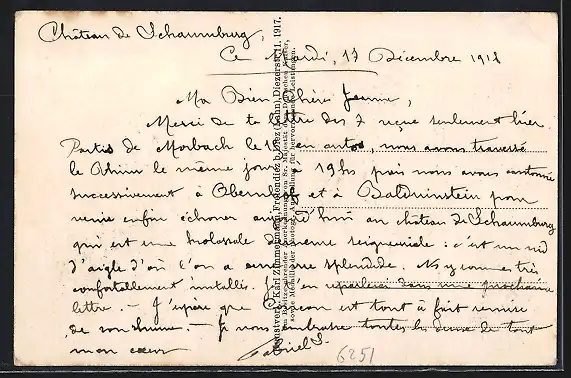 Château de Schaumburg,
Ce Mardi, 17 Décembre 1918
Ma Bien Chère Jeanne,
Merci de ta lettre des 7 reçue seulement hier
Partis de Morbach le en autos, nous avons traversé
le Rhin le même jour à 19hs puis nous avons cantonné
successivement à et à Balduinstein pour
venir enfin échouer aujourd'hui au château de Schaumburg
qui est une colossale demeure seigneuriale : c'est un nid
d'aigle d'où l'on a une vue splendide. Ns y sommes très
confortablement installés. Je t'en reparlerai dans une prochaine
lettre. — J'espère que est tout à fait remise
de son rhume. — Je vous embrasse toutes les deux de tout
mon cœur
Gabriel S.
6251
Kunstverlag Karl Zimmermann, Freiendiez b. Diez (Lahn), Diezerstr. 11. 1917.